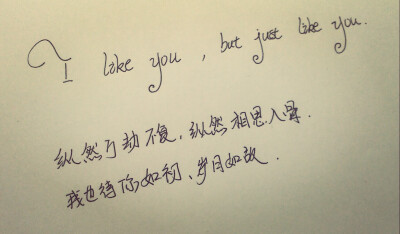 I like you, but just like you.
纵然万劫不复,纵然相思入骨.
我也待你如初、岁月如故.